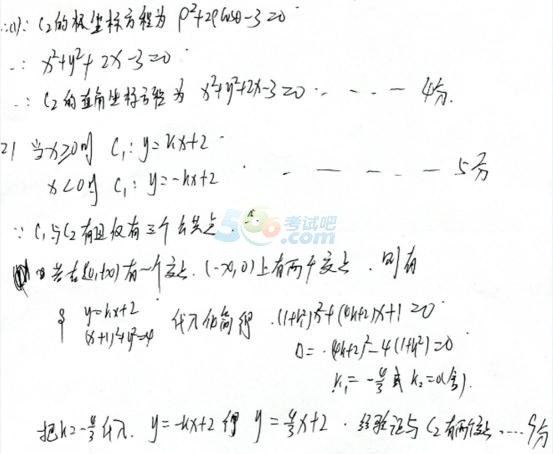 ∴(1): C₂的极坐标方程为 ρ²+2ρcosθ-3=0
∴: x²+y²+2x-3=0
∴: C₂的直角坐标方程为 x²+y²+2x-3=0 ..---4分.
2) 当x≥0时 C₁: y=kx+2
x<0时 C₁: y=-kx+2 .----5分
∵ C₁与C₂有且仅有三个公共点.
506考试吧
.com
① 若在[0,+∞)有一个交点. (-∞,0)上有两个交点. 则有
y=kx+2
(x+1)²+y²=4 代入化简得 .(1+k²)x²+(4k+2)x+1=0
Δ=.(4k+2)²-4(1+k²)=0
k₁=-4/3或k₂=0(舍).
把k=-4/3代入. y=-kx+2得 y=4/3x+2 . 经验证与C₂有两个交点....9分